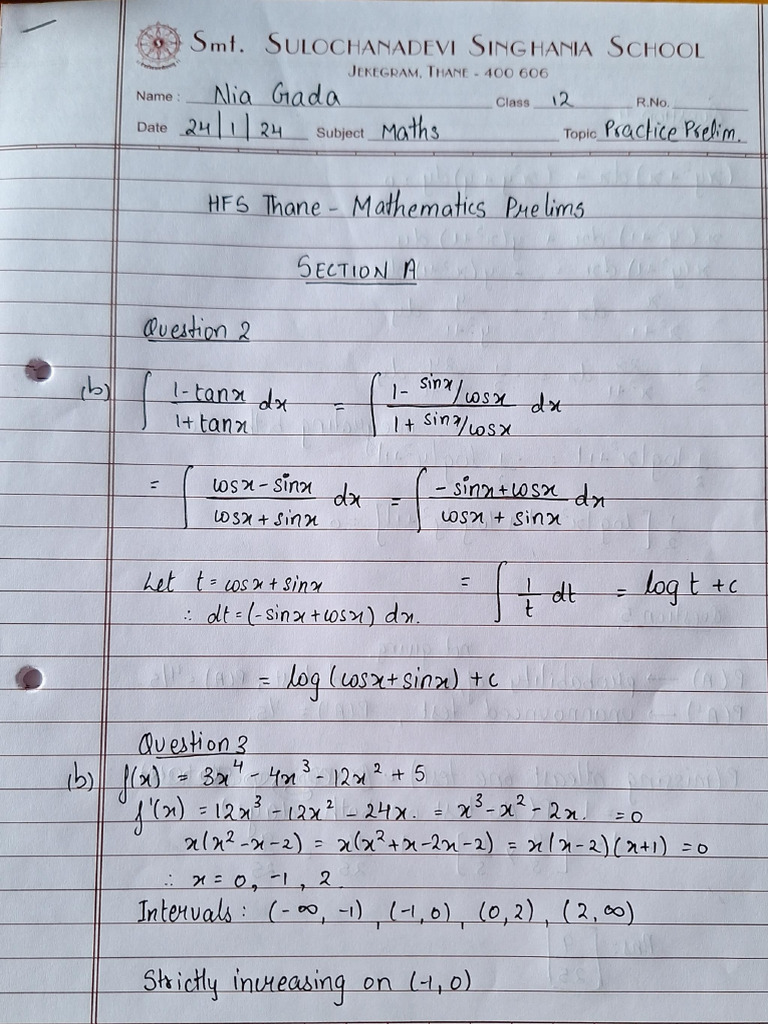 Smt. SULOCHANADEVI SINGHANIA SCHOOL
JEKEGRAM, THANE - 400 606
Name : Nia Gada Class 12 R.No.
Date 24/1/24 Subject Maths Topic Practice Prelim.
HFS Thane - Mathematics Prelims
SECTION A
Question 2
(b) ∫ (1-tanx)/(1+tanx) dx = ∫ (1- sinx/cosx)/(1+ sinx/cosx) dx
= ∫ (cosx-sinx)/(cosx+sinx) dx = ∫ (-sinx+cosx)/(cosx+sinx) dx
Let t=cosx+sinx = ∫ 1/t dt = log t +c
∴ dt=(-sinx+cosx) dx.
= log (cosx+sinx) +c
Question 3
(b) f(x) = 3x⁴ - 4x³ - 12x² + 5
f'(x) = 12x³ -12x² - 24x. = x³-x²-2x. =0
x(x²-x-2) = x(x²+x-2x-2) = x(x-2)(x+1) =0
∴ x=0, -1, 2.
Intervals: (-∞, -1), (-1,0), (0,2), (2,∞)
Strictly increasing on (-1,0)